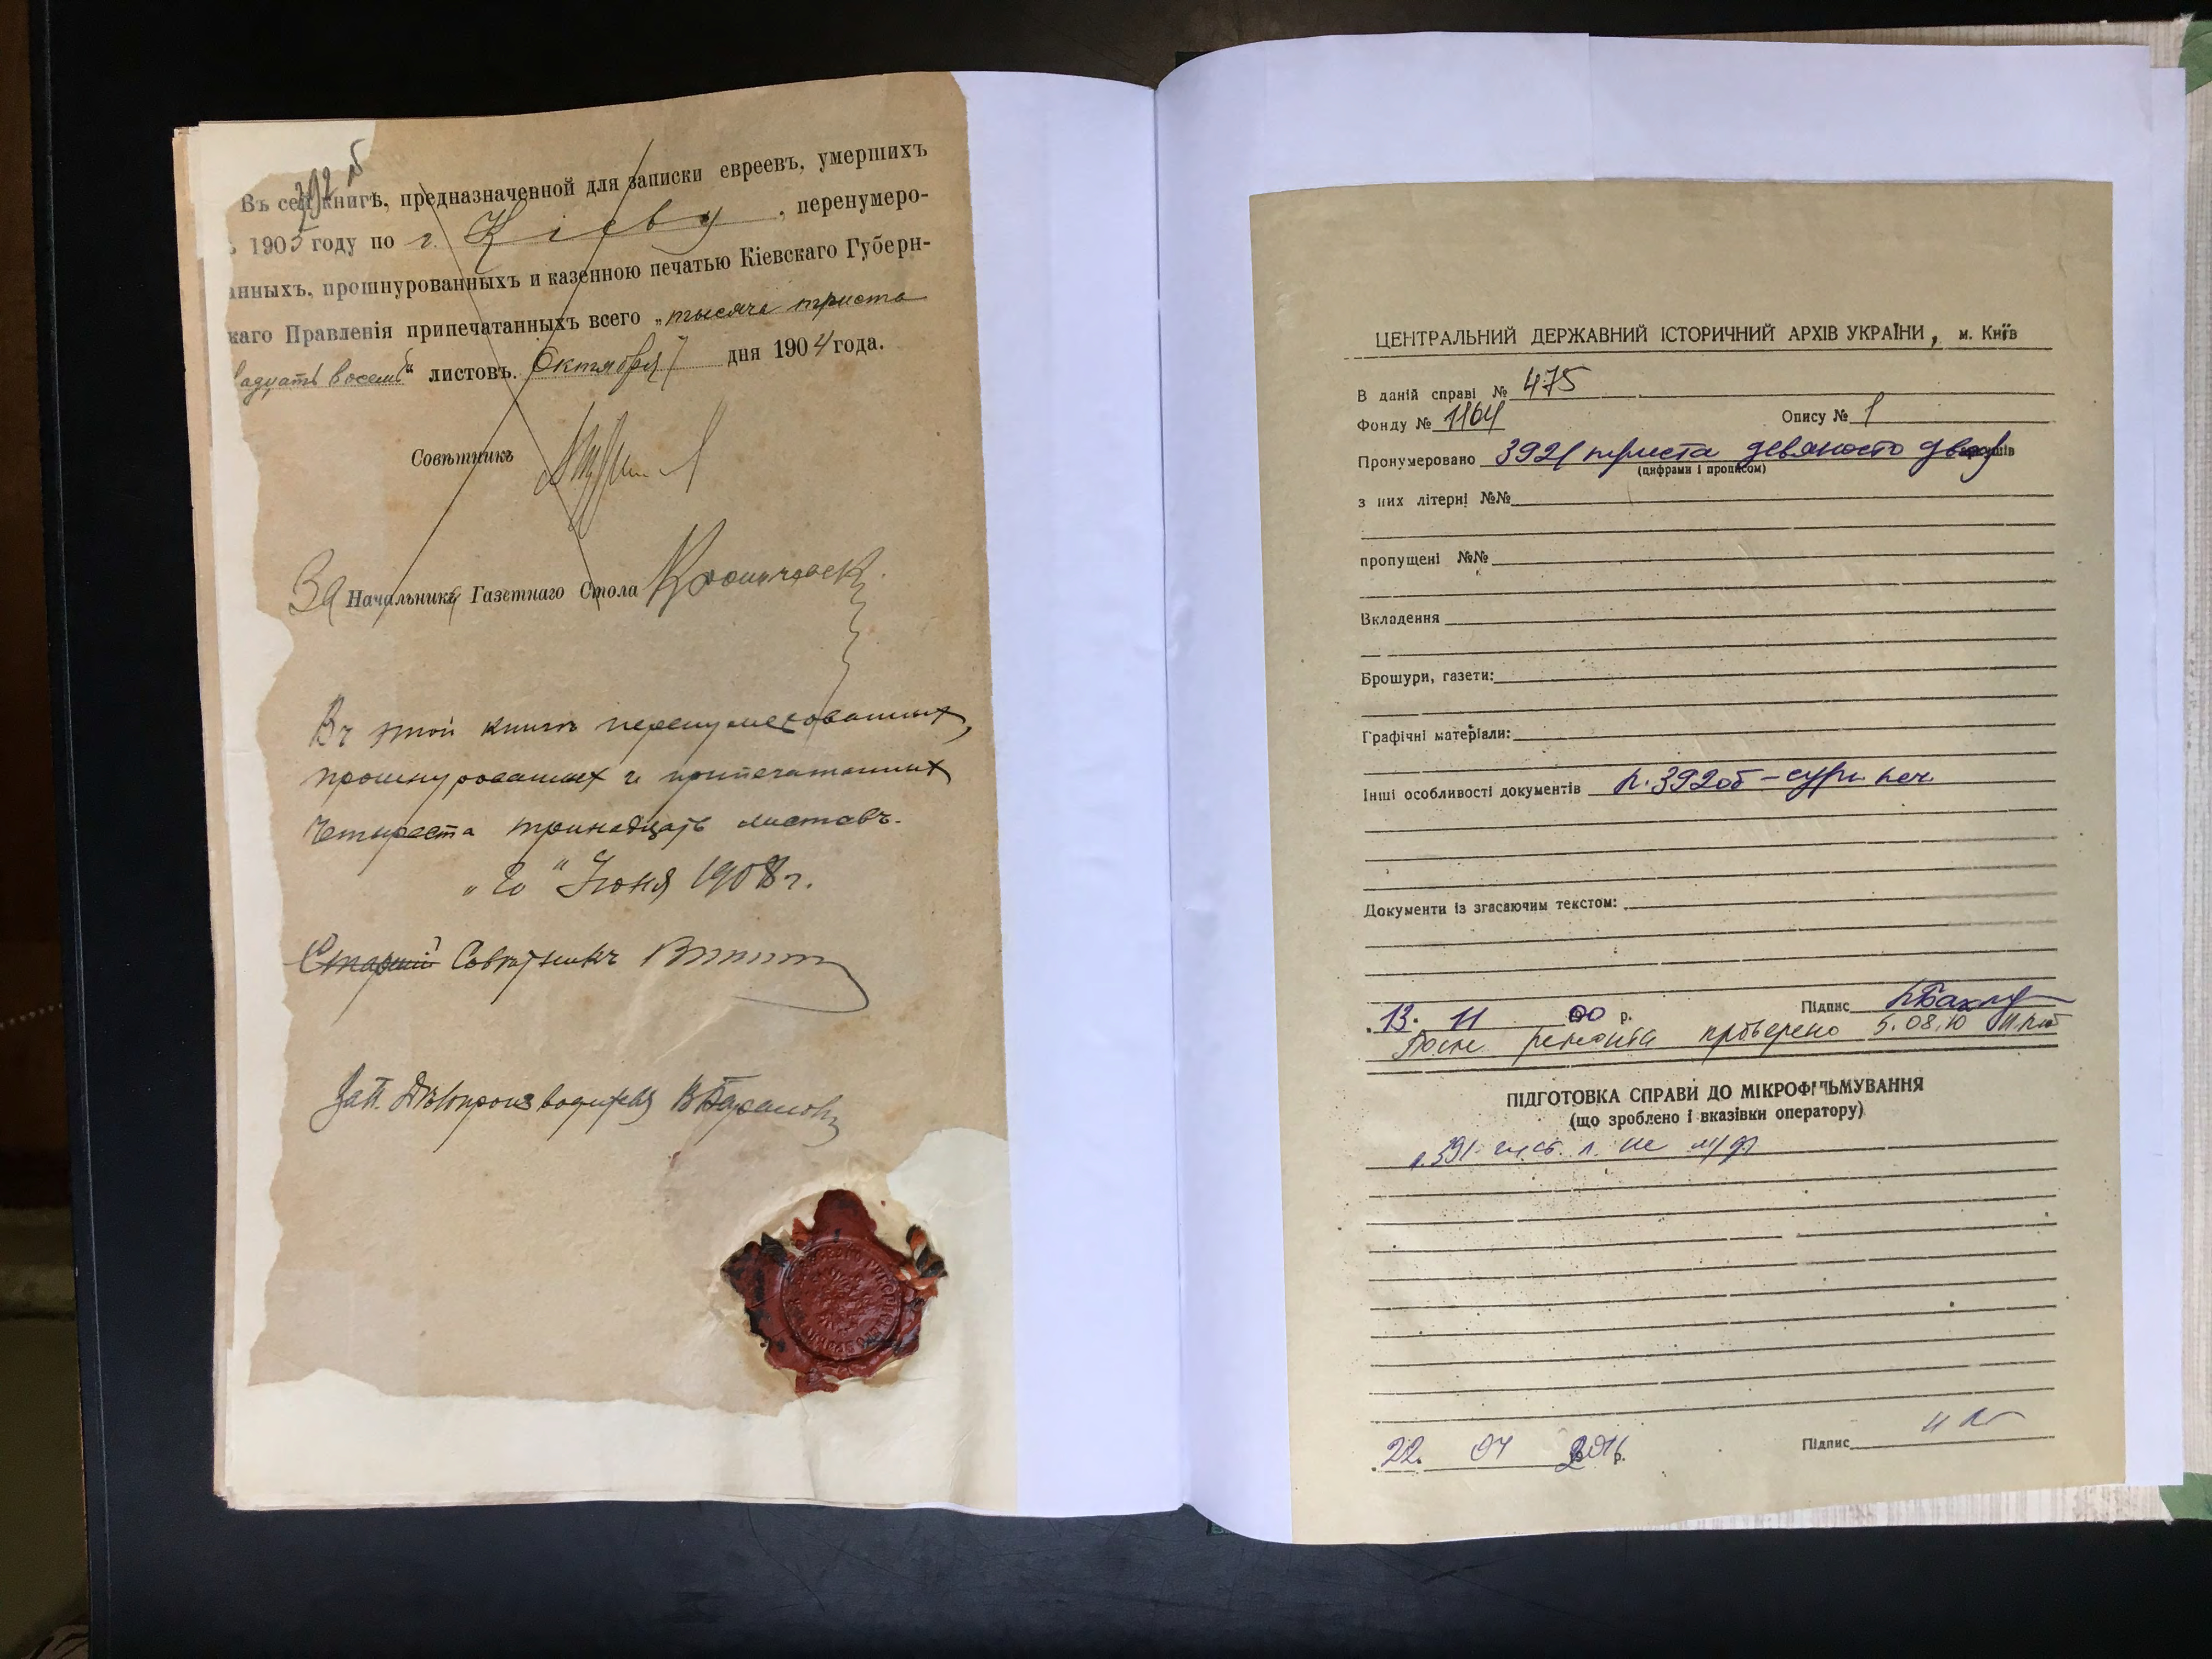 392 об
Въ сей книгѣ, предназначенной для записки евреевъ, умершихъ
1905 году по г. Кіеву, перенумеро-
анныхъ, прошнурованныхъ и казенною печатью Кіевскаго Губерн-
каго Правленія припечатанныхъ всего „тысяча триста
адцать восемь“ листовъ. Октября 7 дня 1904 года.
Совѣтникъ
За Начальника Газетнаго Стола
Въ этой книгѣ перенумерованных,
прошнурованных и припечатанных
четыреста тринадцать листовъ.
„20“ Июня 1908 г.
Старший Совѣтникъ
Зап. Дѣлопроизводителя
ЦЕНТРАЛЬНИЙ ДЕРЖАВНИЙ ІСТОРИЧНИЙ АРХІВ УКРАЇНИ, м. Київ
В даній справі № 475
Фонду № 1164 Опису № 1
Пронумеровано 392 /триста девяносто два/ аркушів
(цифрами і прописом)
з них літерні №№
пропущені №№
Вкладення
Брошури, газети:
Графічні матеріали:
Інші особливості документів л. 392об – сург. печ.
Документи із згасаючим текстом:
13. 11 00 р. Підпис
После ремонта проверено 5.08.10
ПІДГОТОВКА СПРАВИ ДО МІКРОФІЛЬМУВАННЯ
(що зроблено і вказівки оператору)
л. 391 чист. л. не м/ф
22. 04 2016 р. Підпис